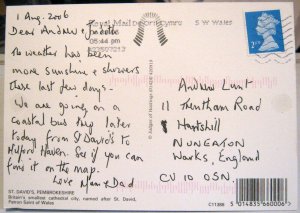 1 Aug. 2006
Royal Mail
Cymru
S W Wales
Dear Andrew &
05:44 pm
2nd
weather has been
more sunshine & showers
these last few days -
We are going on a
coastal bus trip later
today from St David's to
Milford Haven. See if you can
find it on the map.
Love Mam & Dad
Andrew Lunt
11 Trentham Road
Hartshill
NUNEATON
Warks, England
CV10 0SN
© Judges of Hastings
ST. DAVID'S, PEMBROKESHIRE
Britain's smallest cathedral city, named after St. David,
Patron Saint of Wales
C11386
5 014835 660006